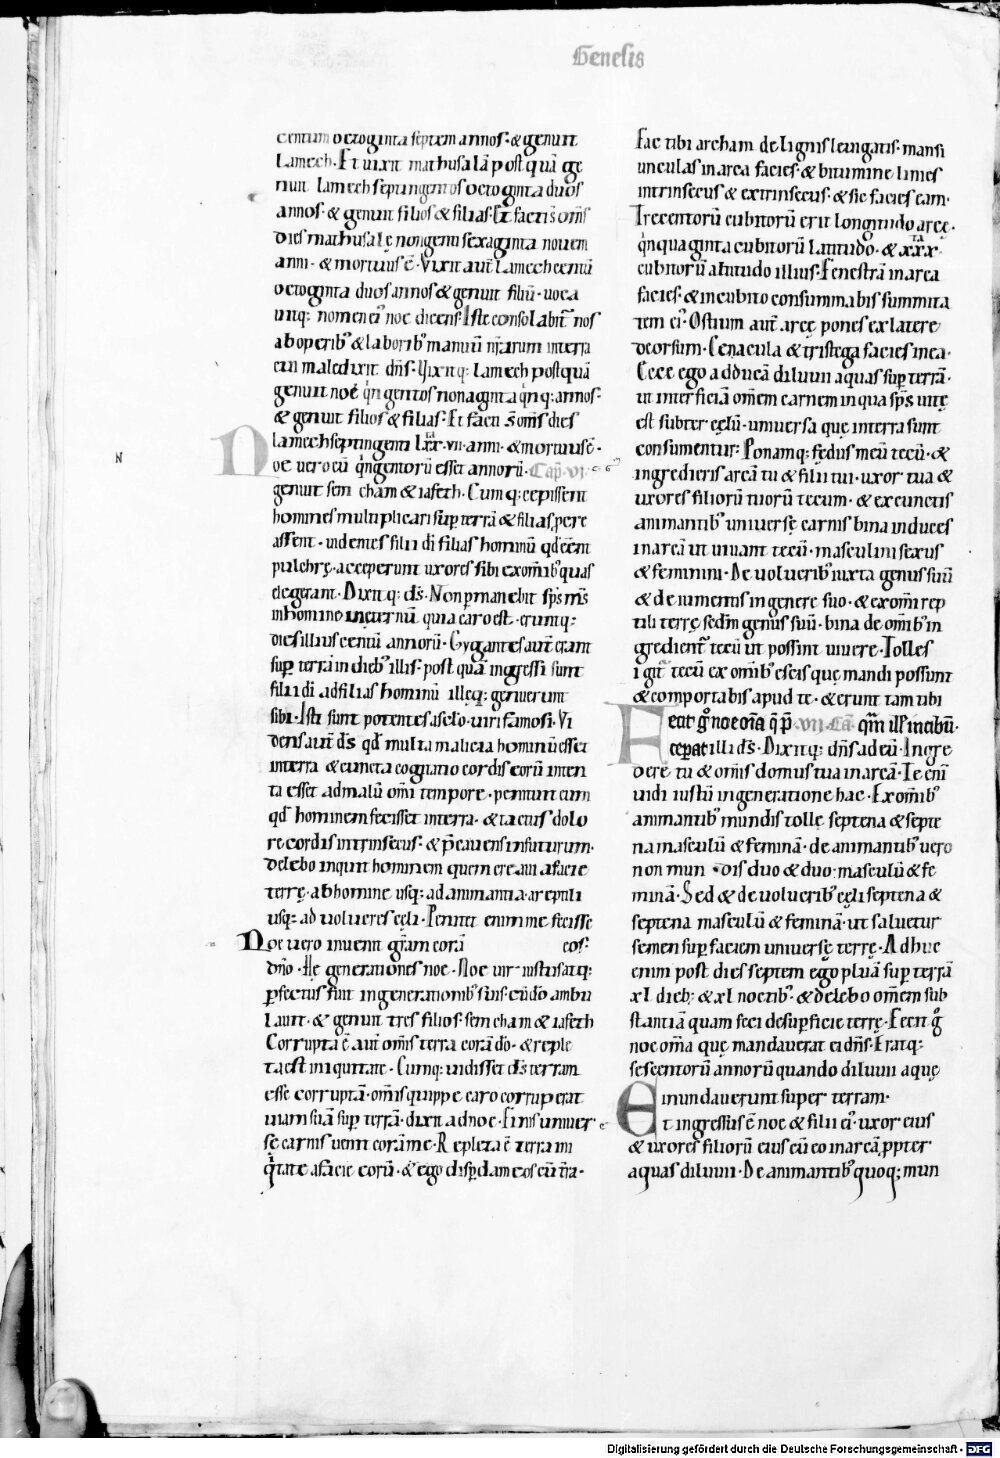 Genesis
centum octoginta septem annos· & genuit
Lamech· Et uixit mathusalā postquā ge
nuit lamech septingentos octoginta duos
annos· & genuit filios & filias· Et facti s̄ om̄s
dies mathusalę nongenti sexaginta nouem
anni· & mortuus ē· Vixit aut̄ Lamech centū
octoginta duos annos & genuit filiū· uoca
uitq; nomen ei᾽ noe dicens· Iste consolabit᷑ nos
ab operib᾽ & laborib᾽ manuū nr̄arum in terra
cui maledixit dn̄s· Vixitq; Lamech postquā
genuit noe q̇ngentos nonaginta q̇nq; annos·
& genuit filios & filias· Et facti s̄ om̄s dies
lamech septingenti lxx·vii· anni· & mortuus ē·
Noe uero cū q̇ngentorū esset annorū· Cap̄· vi·
genuit sem cham & iafeth· Cumq; cepissent
homines multiplicari sup̱ terrā & filias p̱cre
assent· uidentes filii di filias hominū qd̄ eēnt
pulchrę· acceperunt uxores sibi ex om̄ib᾽ quas
elegerant· Dixitq; ds̄· Non p̱manebit sp̄s m̄s
in homine in ęternū quia caro est· eruntq;
dies illius centū annorū· Gygantes aut̄ erant
sup̱ terrā in dieb᾽ illis· postquā ingressi sunt
filii di ad filias hominū illęq; genuerunt
sibi· Isti sunt potentes a sc̄lo· uiri famosi· Vi
dens aut̄ ds̄ qd̄ multa malicia hominū esset
in terra & cuncta cogitatio cordis eorū inten
ta esset ad malū omī tempore· penituit eum
qd̄ hominem fecisset in terra· & tactus dolo
re cordis intrinsecus· & p̄cauens in futurum·
Delebo inquit hominem quem creaui a facie
terrę· ab homine usq; ad animantia· a reptili
usq; ad uolucres cęli· Penitet enim me fecisse
Noe uero inuenit gr̄am corā eos·
dn̄o· He generationes noe· Noe uir iustus atq;
p̱fectus fuit in generationib᾽ suis· cū do ambu
lauit· & genuit tres filios· sem cham & iafeth
Corrupta ē aut̄ om̄is terra corā do· & reple
ta est iniquitate· Cumq; uidisset ds̄ terram
esse corruptā· om̄is quippe caro corruperat
uiam suā sup̱ terrā· dixit ad noe· Finis uniuer
sę carnis uenit corā me· Repleta ē terra ini
q̇tate a facie eorū· & ego disp̱dam eos cū t̄ra·
Fac tibi archam de lignis leuigatis· mansi
unculas in arca facies· & bitumine linies
intrinsecus & extrinsecus· & sic facies eam·
Trecentorū cubitorū erit longitudo arcę·
q̇nquaginta cubitorū latitudo· & xxx·
cubitorū altitudo illius· Fenestrā in arca
facies· & in cubito consummabis summita
tem ei᾽· Ostium aut̄ arcę pones ex latere
deorsum· Cenacula & tristega facies in ea·
Ecce ego adducā diluuii aquas sup̱ terrā·
ut interficiā om̄em carnem in qua sp̄s uitę
est subter cęlū· uniuersa quę in terra sunt
consumentur· Ponamq; fędus meū tecū· &
ingredieris arcā tu & filii tui· uxor tua &
uxores filiorū tuorū tecum· & ex cunctis
animantib᾽ uniuersę carnis bina induces
in arcā ut uiuant tecū· masculini sexus
& feminini· De uolucrib᾽ iuxta genus suū
& de iumentis in genere suo· & ex om̄i rep
tili terrę sedm̄ genus suū· bina de om̄ib᾽ in
gredient᷑ tecū ut possint uiuere· Tolles
igit᷑ tecū ex om̄ib᾽ escis quę mandi possunt
& comportabis apud te· & erunt tam tibi
Fecit g̊ noe om̄ia q̄ p̄ ·vii· Ca· qm̄ ill̄ in cibū·
ceperat illi ds̄· Dixitq; dn̄s ad eū· Ingre
dere tu & om̄is domus tua in arcā· Te enī
uidi iustū in generatione hac· Ex om̄ib᾽
animantib᾽ mundis tolle septena & septe
na masculū & feminā· de animantib᾽ uero
non mundis duo & duo· masculū & fe
minā· Sed & de uolucrib᾽ cęli septena &
septena masculū & feminā· ut saluetur
semen sup̱ faciem uniuersę terrę· Adhuc
enim post dies septem ego pluā sup̱ terrā
xl dieb; & xl noctib᾽· & delebo om̄em sub
stantiā quam feci de sup̱ficie terrę· Fecit g̊
noe om̄ia quę mandauerat ei dn̄s· Eratq;
sescentorū annorū quando diluuii aquę
inundauerunt super terram·
Et ingressus ē noe & filii ei᾽· uxor eius
& uxores filiorū eius cū eo in arcā p̱pter
aquas diluuii· De animantib᾽ quoq; mun
N
Digitalisierung gefördert durch die Deutsche Forschungsgemeinschaft - DFG